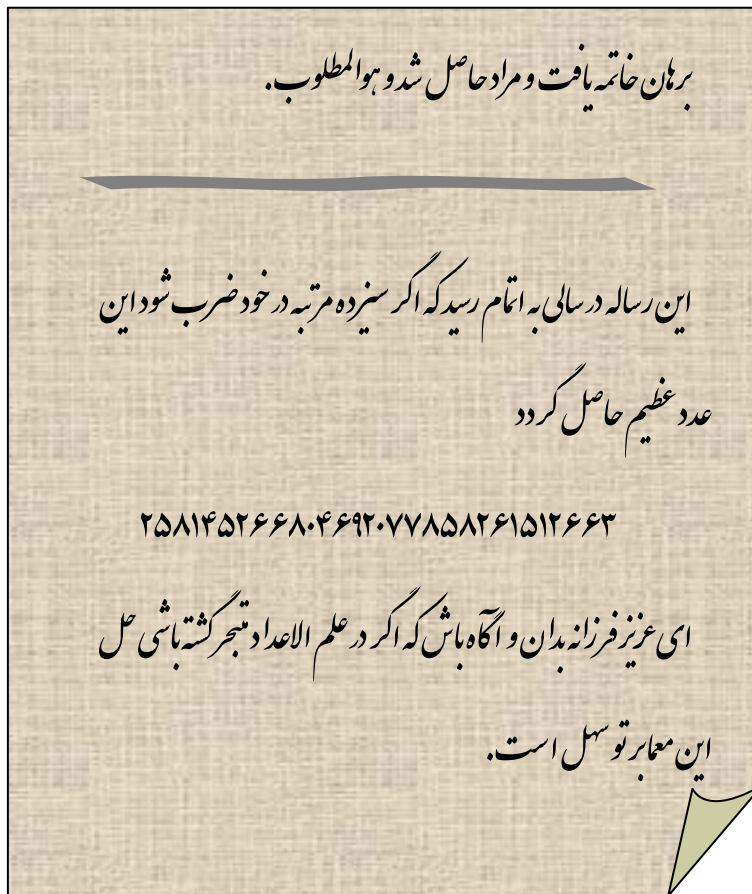 برهان خاتمه یافت و مراد حاصل شد و هوالمطلوب.
این رساله در سالی به اتمام رسید که اگر سیزده مرتبه در خود ضرب شود این
عدد عظیم حاصل گردد
۲۵۸۱۴۵۲۶۶۸۰۴۶۹۲۰۷۷۸۵۸۲۶۱۵۱۲۶۶۳
ای عزیز فرزانه بدان و آگاه باش که اگر در علم الاعداد متبحر گشته باشی حل
این معما بر تو سهل است.